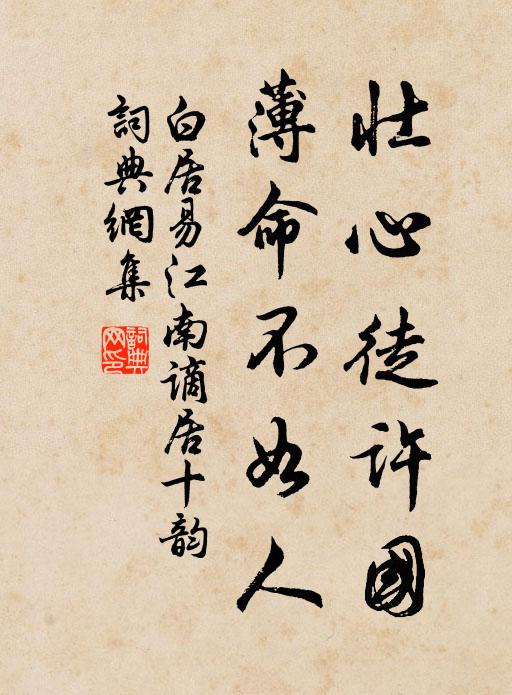 壮心徒許國
薄命不如人
白居易江南謫居十韵
詞典網集
詞典網印